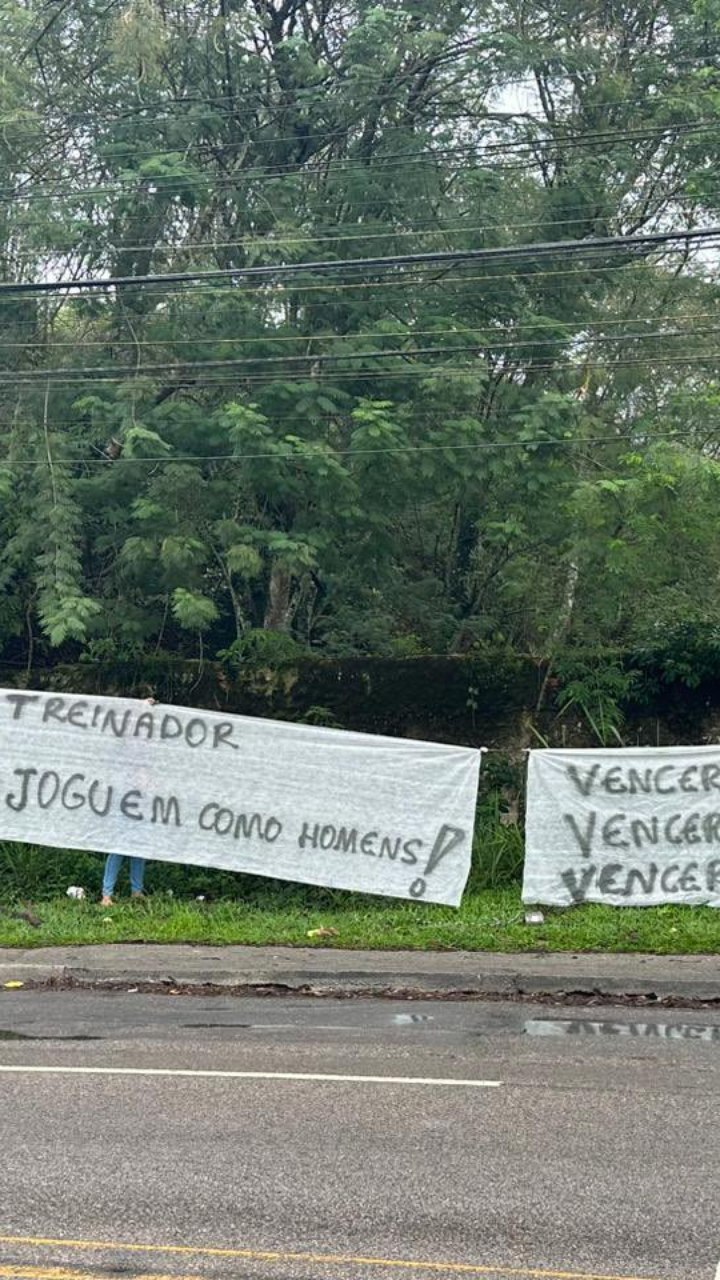 TREINADOR
JOGUEM COMO HOMENS!
VENCER
VENCER
VENCER